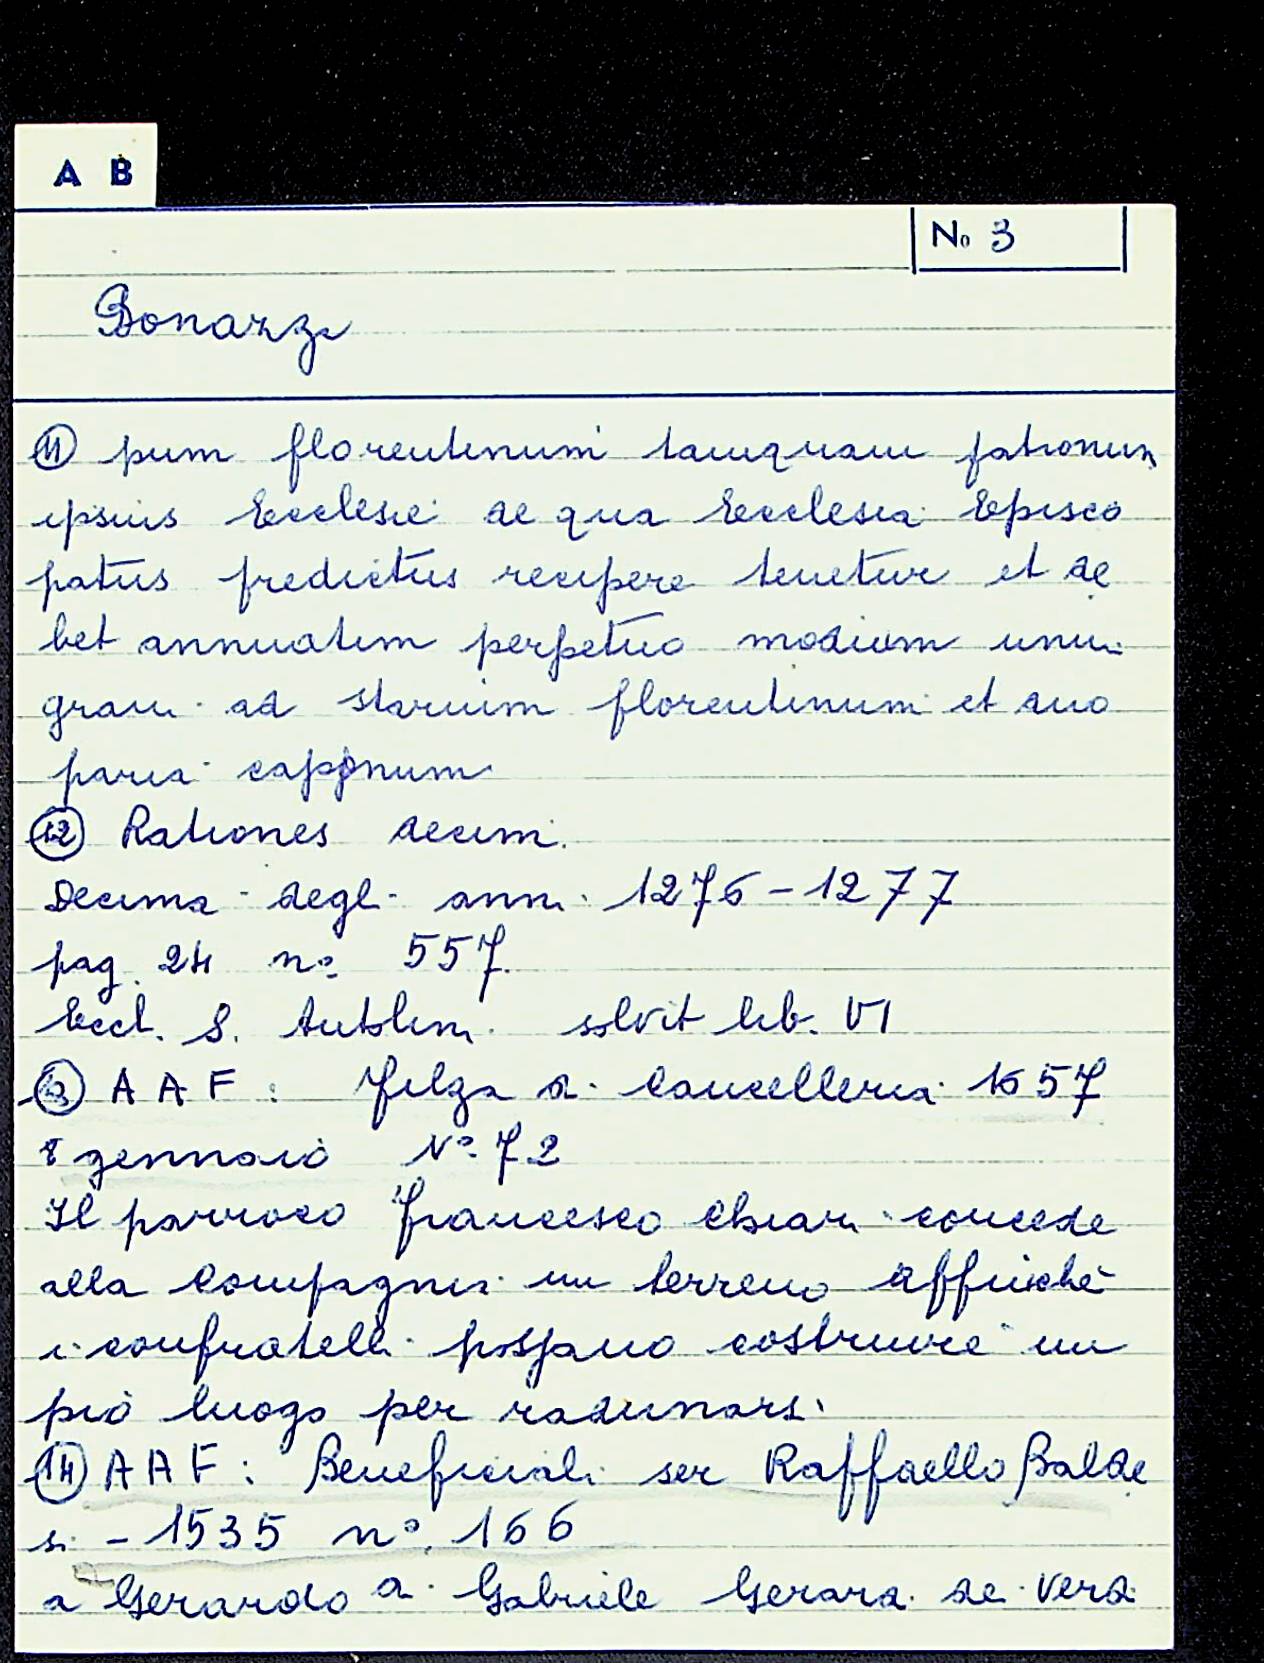 A B
No 3
Bonazzi
11 pum florentinum tamquam patronum
ipsius Ecclesie de qua Ecclesia Episco
patus predictus recipere tenetur et de
bet annuatim perpetuo modium unu
grani ad starium florentinum et duo
paria caponum
12 Rationes decim.
Decima degli anni 1276-1277
pag. 24 n° 557
Eccl. S. solvit lib. VI
13 A A F : Filza di Cancelleria 1657
8 gennaio N° 72
Il parroco Francesco Chiari concede
alla Compagnia un terreno affinchè
i confratelli possano costruire un
pio luogo per radunarsi
14 A A F : Beneficiali ser Raffaello Balde
si - 1535 n° 166
a Gerardo di Gabriele Gerardi dei Verdi